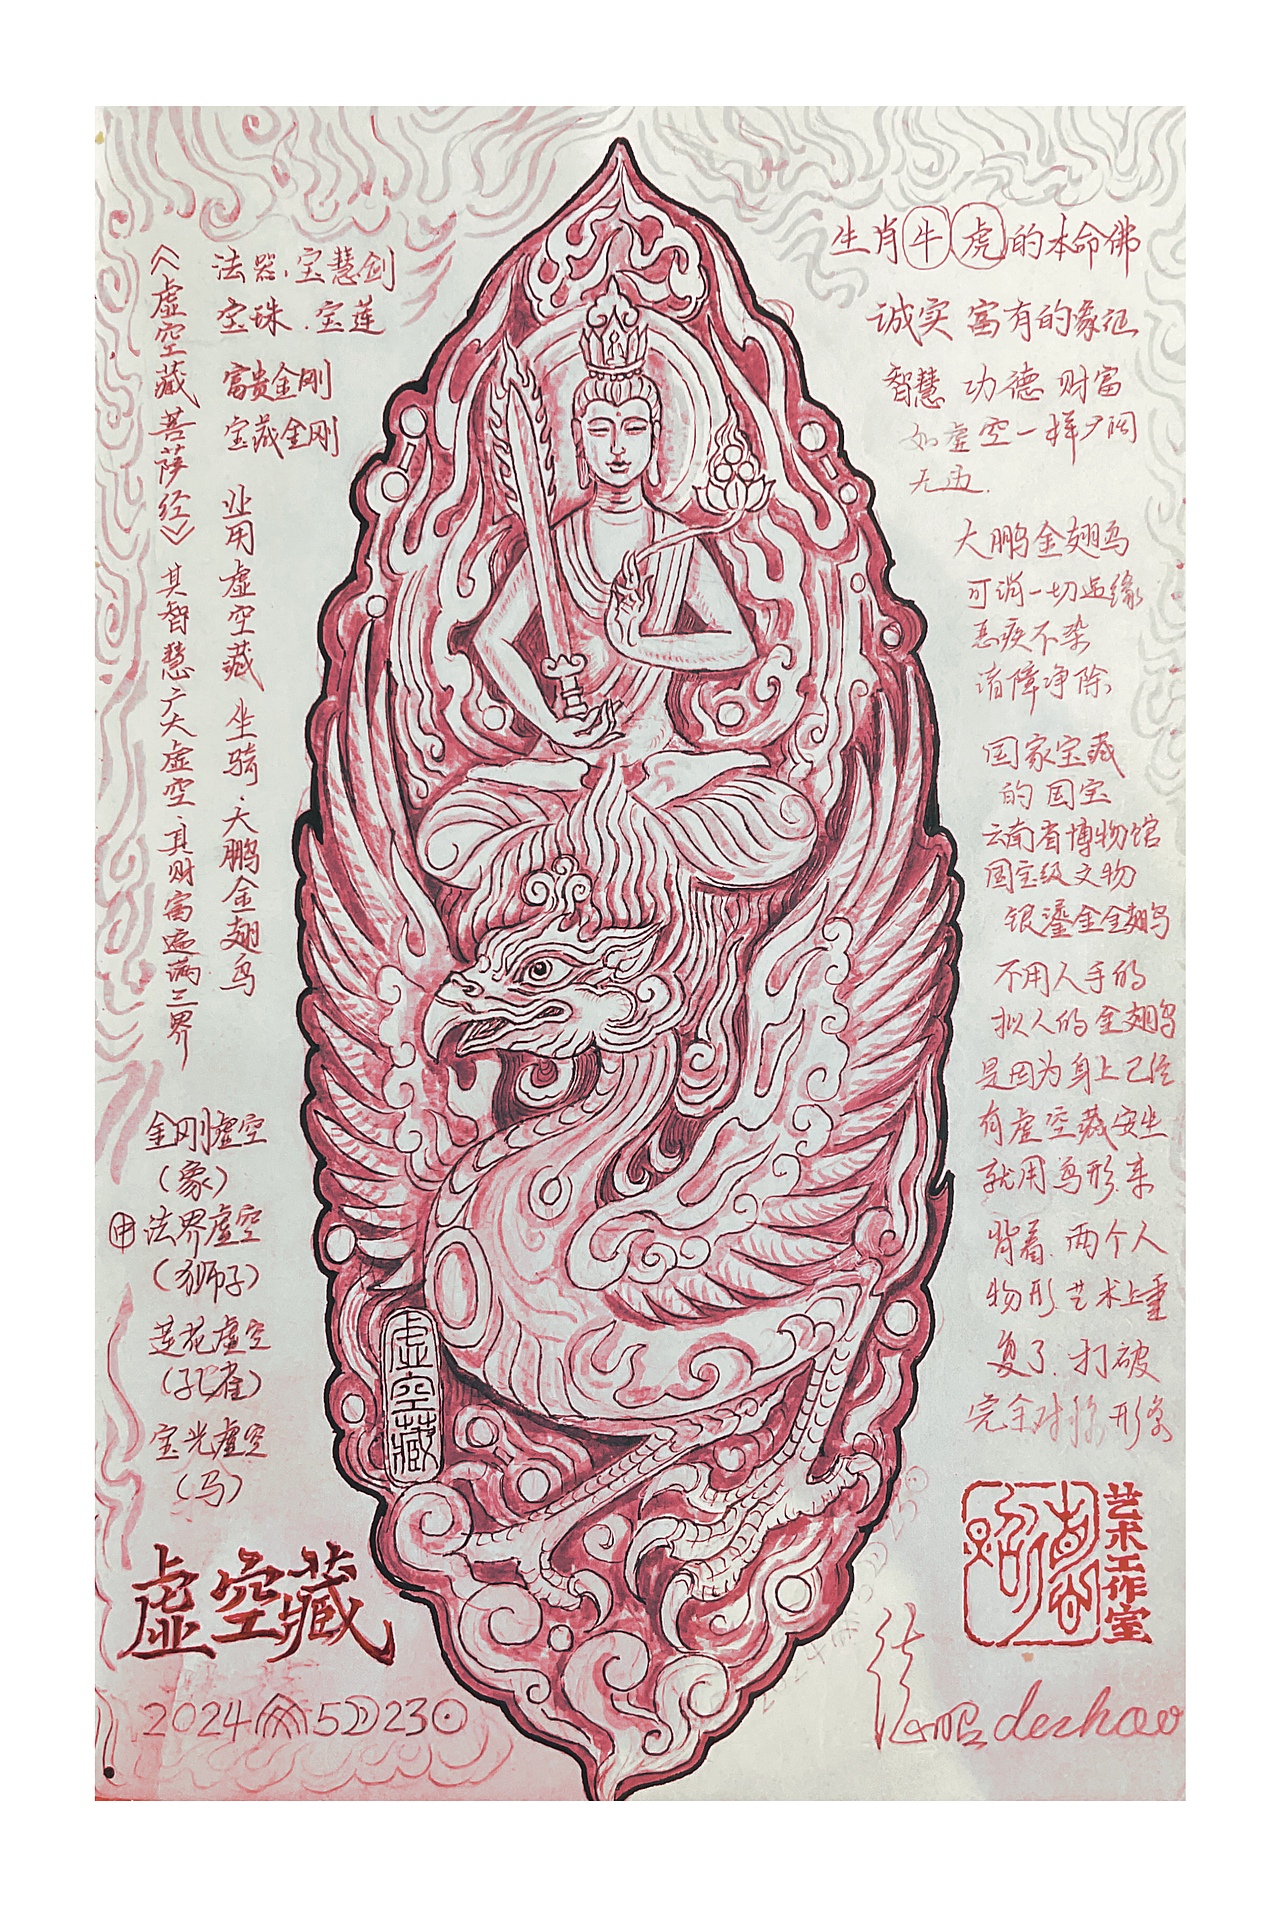 《虚空藏菩萨经》其智慧广大虚空.其财富遍满三界
法器.宝慧剑
宝珠.宝莲
富贵金刚
宝藏金刚
业用虚空藏坐骑.大鹏金翅鸟
金刚虚空
(象)
申 法界虚空
(狮子)
莲花虚空
(孔雀)
宝光虚空
(马)
虚空藏
2024 5 23
虚空藏
生肖牛虎的本命佛
诚实 富有的象征
智慧 功德 财富
如虚空一样广阔
无边.
大鹏金翅鸟
可消一切逆缘
恶疾不染
诸障净除
国家宝藏
的国宝
云南省博物馆
国宝级文物
银鎏金金翅鸟
不用人手的
拟人的金翅鸟
是因为身上已经
有虚空藏安坐
就用鸟形.来
背着.两个人
物形.艺术上重
复了.打破
完全对称形象
艺术工作室
dezhao